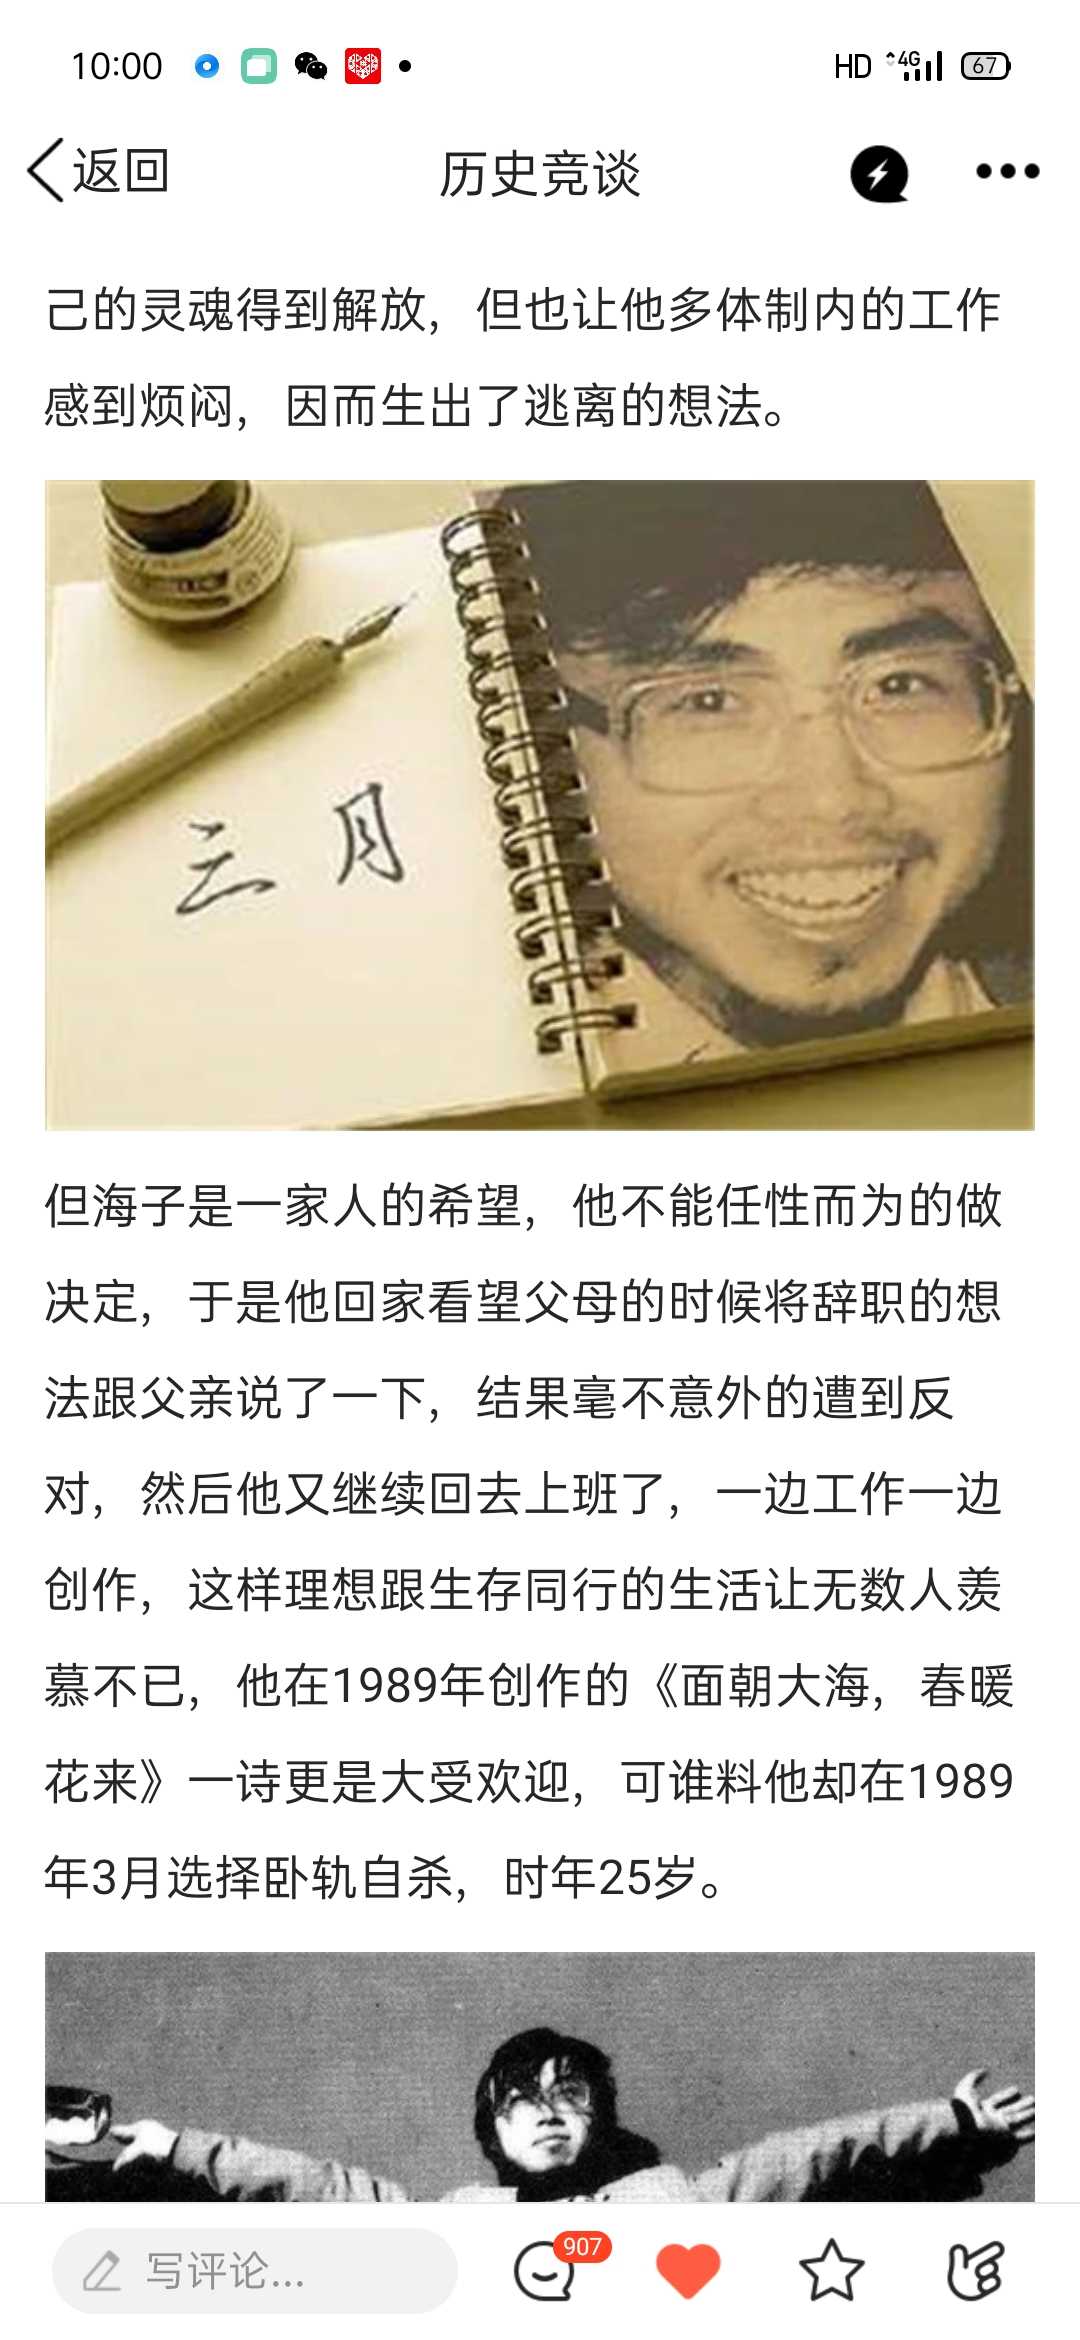 10:00
HD 4G 67
返回
历史竞谈
己的灵魂得到解放，但也让他多体制内的工作
感到烦闷，因而生出了逃离的想法。
三月
但海子是一家人的希望，他不能任性而为的做
决定，于是他回家看望父母的时候将辞职的想
法跟父亲说了一下，结果毫不意外的遭到反
对，然后他又继续回去上班了，一边工作一边
创作，这样理想跟生存同行的生活让无数人羡
慕不已，他在1989年创作的《面朝大海，春暖
花来》一诗更是大受欢迎，可谁料他却在1989
年3月选择卧轨自杀，时年25岁。
写评论...
907